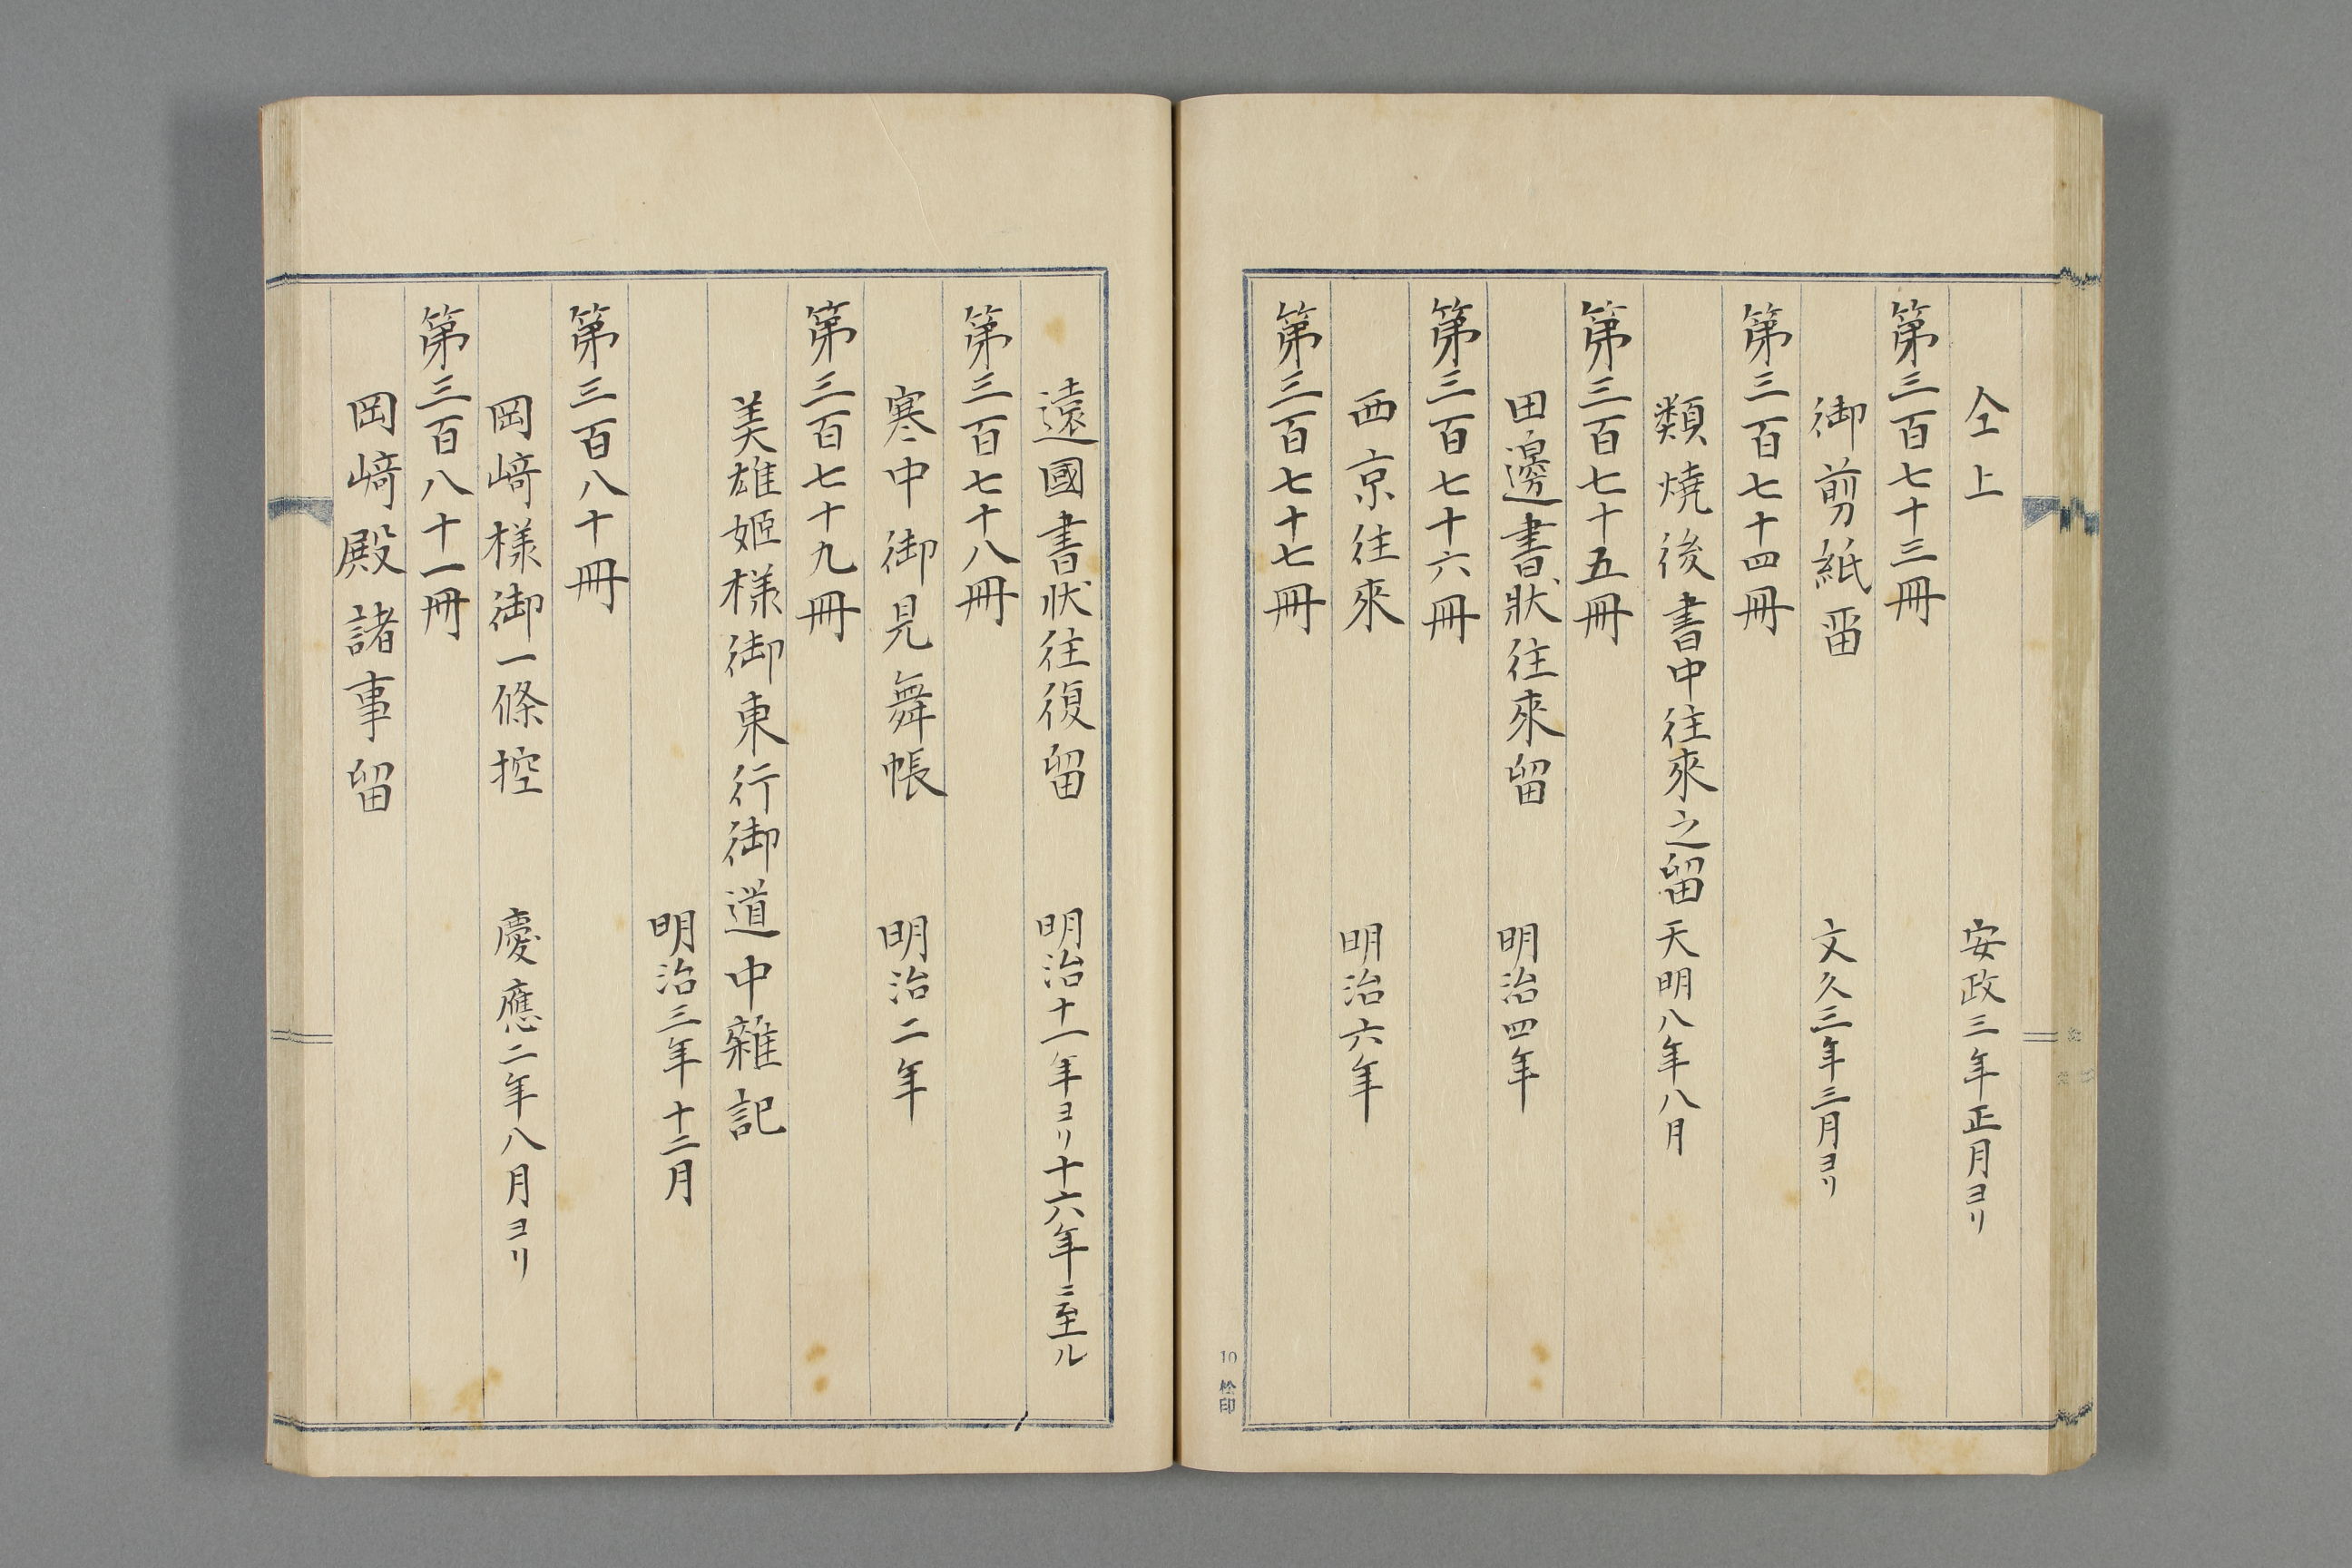 仝上　安政三年正月ヨリ
第三百七十三冊
御剪紙畄　文久三年三月ヨリ
第三百七十四冊
類燒後書中往來之留　天明八年八月
第三百七十五冊
田邊書狀往來留　明治四年
第三百七十六冊
西京往來　明治六年
第三百七十七冊
10 松印
遠國書狀往復留　明治十一年ヨリ十六年ニ至ル
第三百七十八冊
寒中御見舞帳　明治二年
第三百七十九冊
美雄姬樣御東行御道中雜記
明治三年十二月
第三百八十冊
岡﨑樣御一條控　慶應二年八月ヨリ
第三百八十一冊
岡﨑殿諸事留